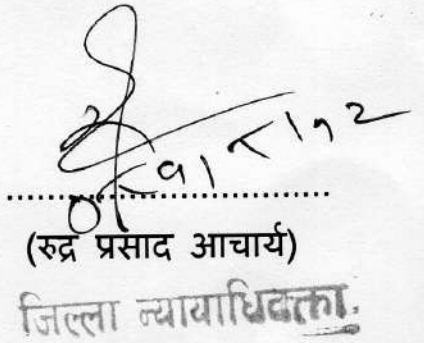 (रुद्र प्रसाद आचार्य)
जिल्ला न्यायाधिवक्ता.